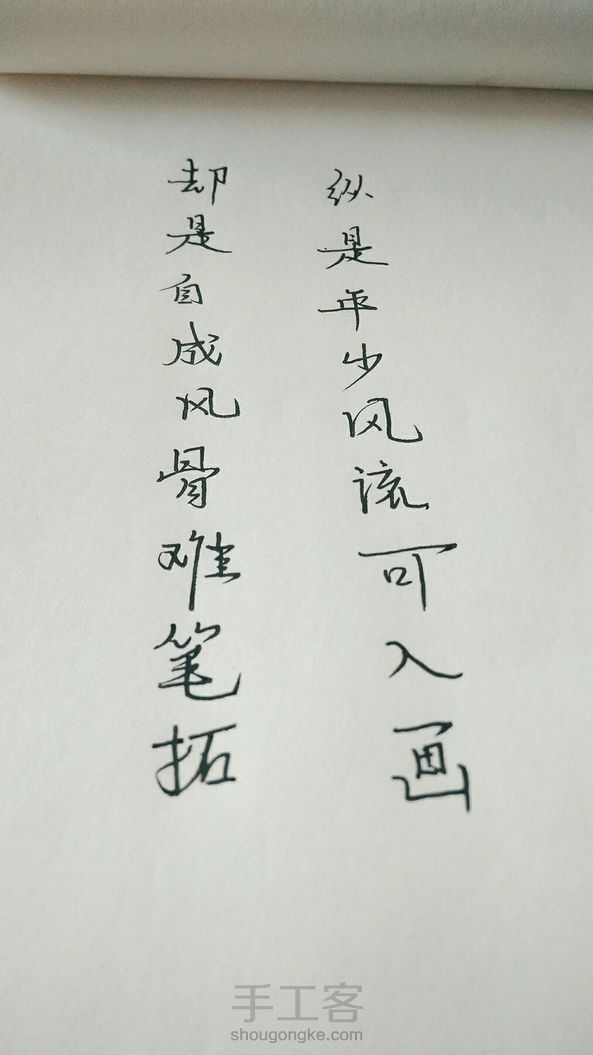 纵是年少风流可入画
却是自成风骨难笔拓
手工客
shougongke.com